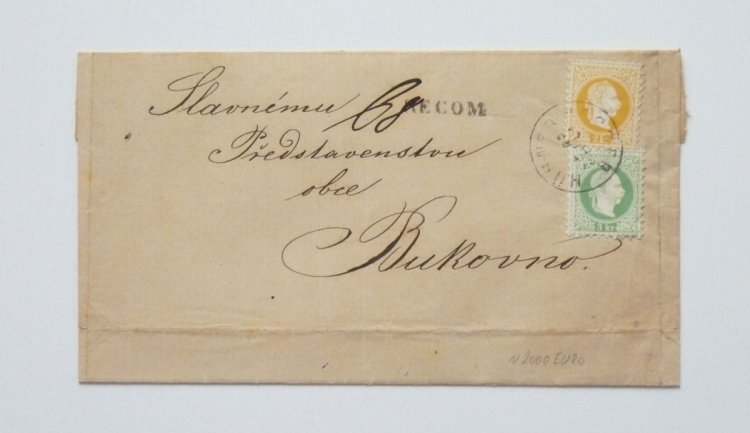 Slavnému
RECOM
Představenstvu
obce
Bukovno.
2 kr
3 kr